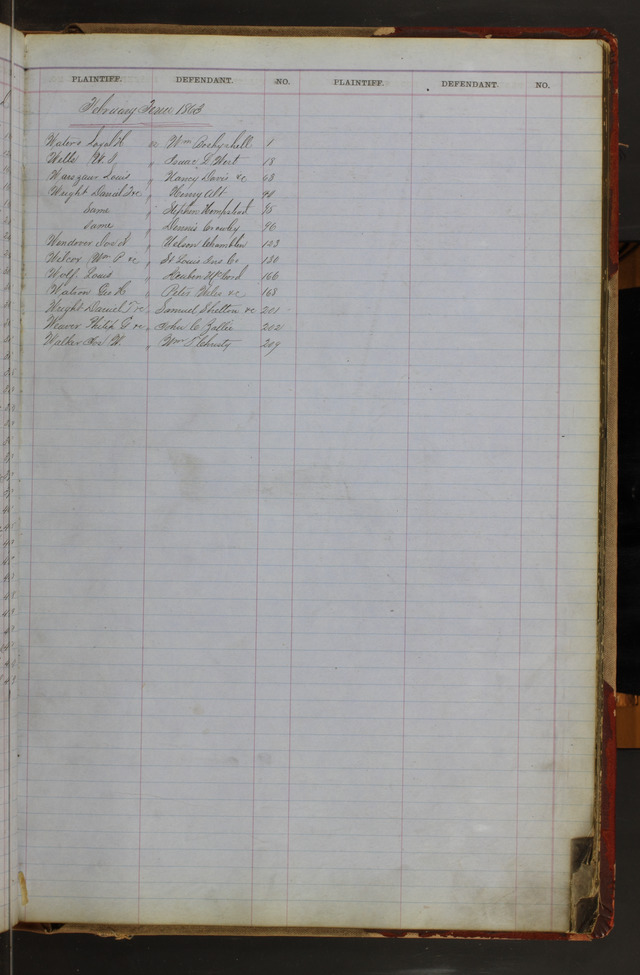 PLAINTIFF. DEFENDANT. NO. PLAINTIFF. DEFENDANT. NO.
February Term 1863
Waters Loyal H vs Wm 1
Wells W. S. " Isaac L 18
Louis " Nancy Davis &c 63
Wright Daniel T &c " Henry Alt 94
Same " Stephen Hempstead 95
Same " Dennis Crowley 96
" Nelson Chamblin 123
Wilcox Wm P &c " St Louis Ins Co 130
Wolf Louis " Reuben McCord 166
Watson Geo H " Peter &c 168
Wright Daniel T &c " Samuel Shelton &c 201
Weaver Philip G &c " John C 202
Walker W. " Wm T Christy 209